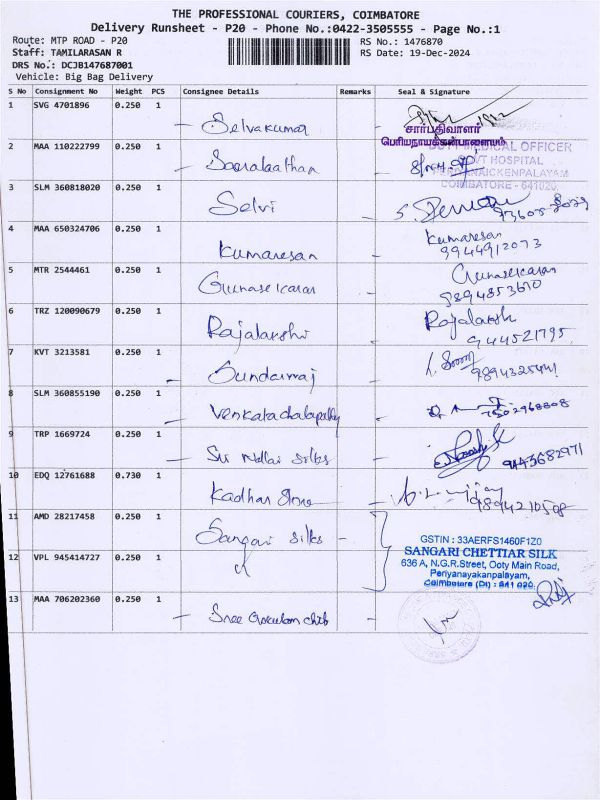 THE PROFESSIONAL COURIERS, COIMBATORE
Delivery Runsheet - P20 - Phone No.:0422-3505555 - Page No.:1
Route: MTP ROAD - P20
RS No.: 1476870
Staff: TAMILARASAN R
RS Date: 19-Dec-2024
DRS No.: DCJB147687001
Vehicle: Big Bag Delivery
S No Consignment No Weight PCS Consignee Details Remarks Seal & Signature
1 SVG 4701896 0.250 1 Selvakumar
சார்பதிவாளர்
பெரியநாயக்கன்பாளையம்
2 MAA 110222799 0.250 1
DUTY MEDICAL OFFICER
GOVT HOSPITAL
PERIYANAICKENPALAYAM
COIMBATORE - 641020
3 SLM 360818020 0.250 1 Selvi
4 MAA 650324706 0.250 1 Kumaresan Kumaresan
9944912073
5 MTR 2544461 0.250 1 Gunasekaran Gunasekaran
9894853670
6 TRZ 120090679 0.250 1 Rajalakshmi Rajalaksh
9444521795
7 KVT 3213581 0.250 1 Sundarraj
8 SLM 360855190 0.250 1 Venkatachalapathy
7502968808
9 TRP 1669724 0.250 1 Sri Nellai Silks
9443682971
10 EDQ 12761688 0.730 1 Kadhar Store
9894210508
11 AMD 28217458 0.250 1 Sangari Silks
GSTIN : 33AERFS1460F1Z0
SANGARI CHETTIAR SILK
636 A, N.G.R.Street, Ooty Main Road,
Periyanayakanpalayam,
Coimbatore (Dt) : 641 020.
12 VPL 945414727 0.250 1
13 MAA 706202360 0.250 1 Sree Gokulam Chits